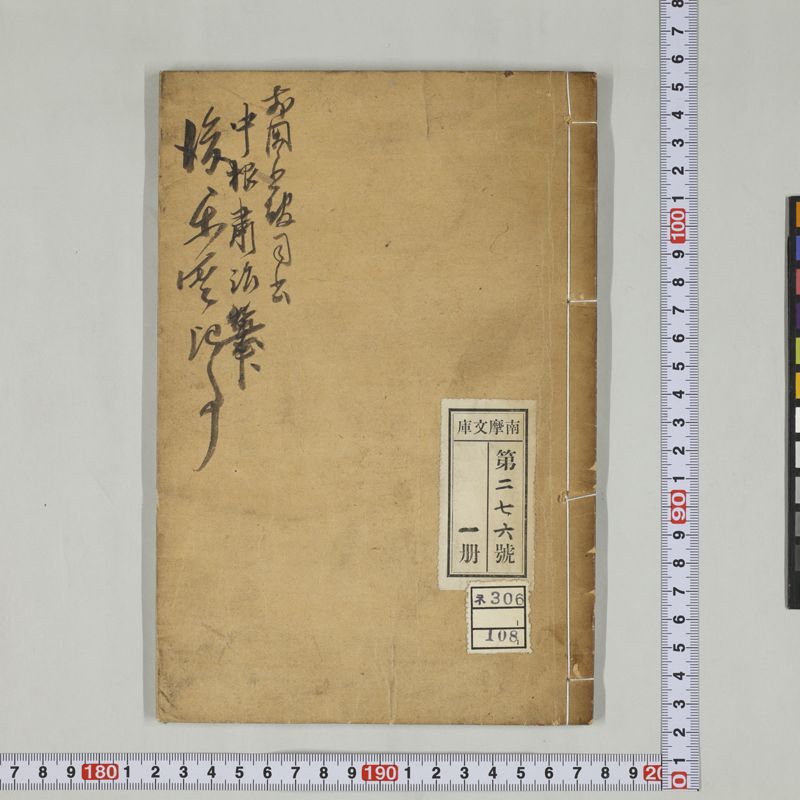 前図書館司書
中根粛治筆
後楽園記事
南摩文庫
第二七六號
一册
ネ306
108
8 7 6 5 4 3 2 1 100 9 8 7 6 5 4 3 2 1 90 9 8 7 6 5 4 3 2 1 0
7 8 9 180 1 2 3 4 5 6 7 8 9 190 1 2 3 4 5 6 7 8 9 20